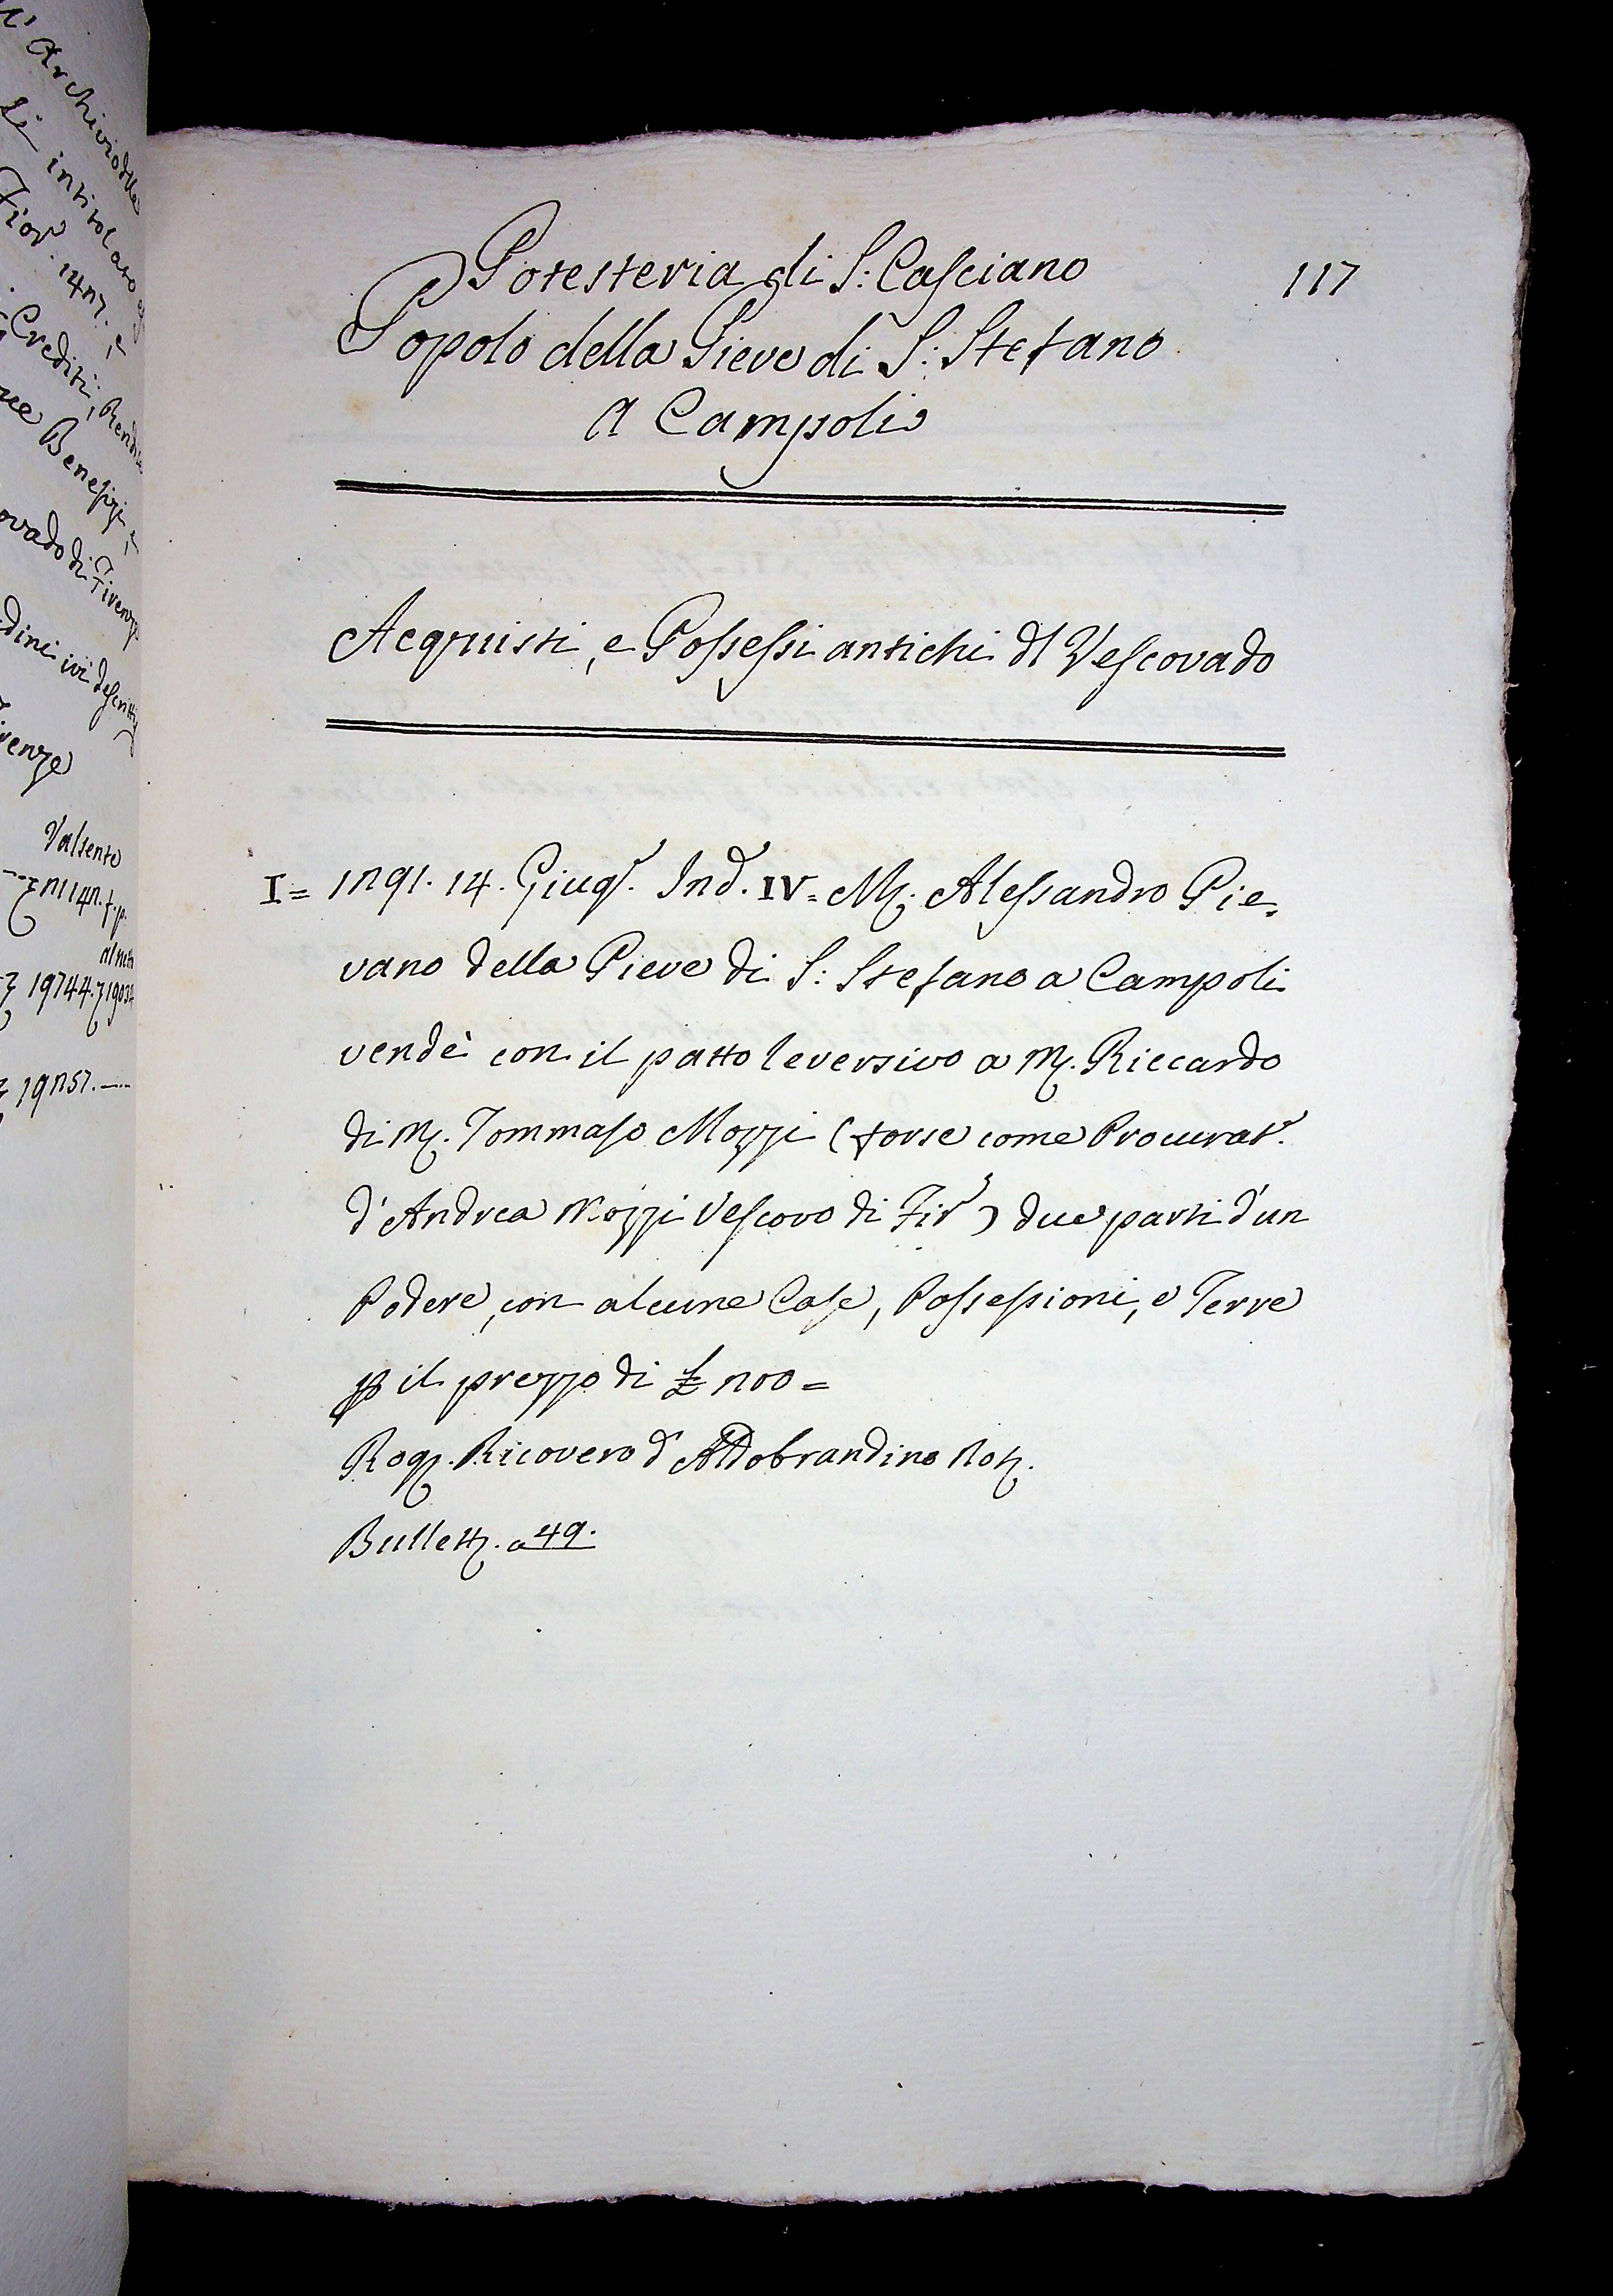 Archivio della
intitolato
Fior. 1427. e
Crediti, Rendite
Benefizj, e
ovado di Firenze
dini ivi descritti
irenze
Valsente
19744.
19251.
117
Potesteria di S: Casciano
Popolo della Pieve di S: Stefano
A Campoli
Acquisti, e Possessi antichi dl Vescovado
I = 1291. 14. Giugº. Ind. IV = M. Alessandro Pie=
vano della Pieve di S: Stefano a Campoli
vendè con il patto leversivo a M. Riccardo
di M. Tommaso Mozzi (forse come Procurat.
d'Andrea Mozzi Vescovo di Fir.) due parti d'un
Podere, con alcune Case, Possessioni, e Terre
p il prezzo di £ 200 =
Rog. Ricovero d'Aldobrandino Not.
Bullett. a 49.